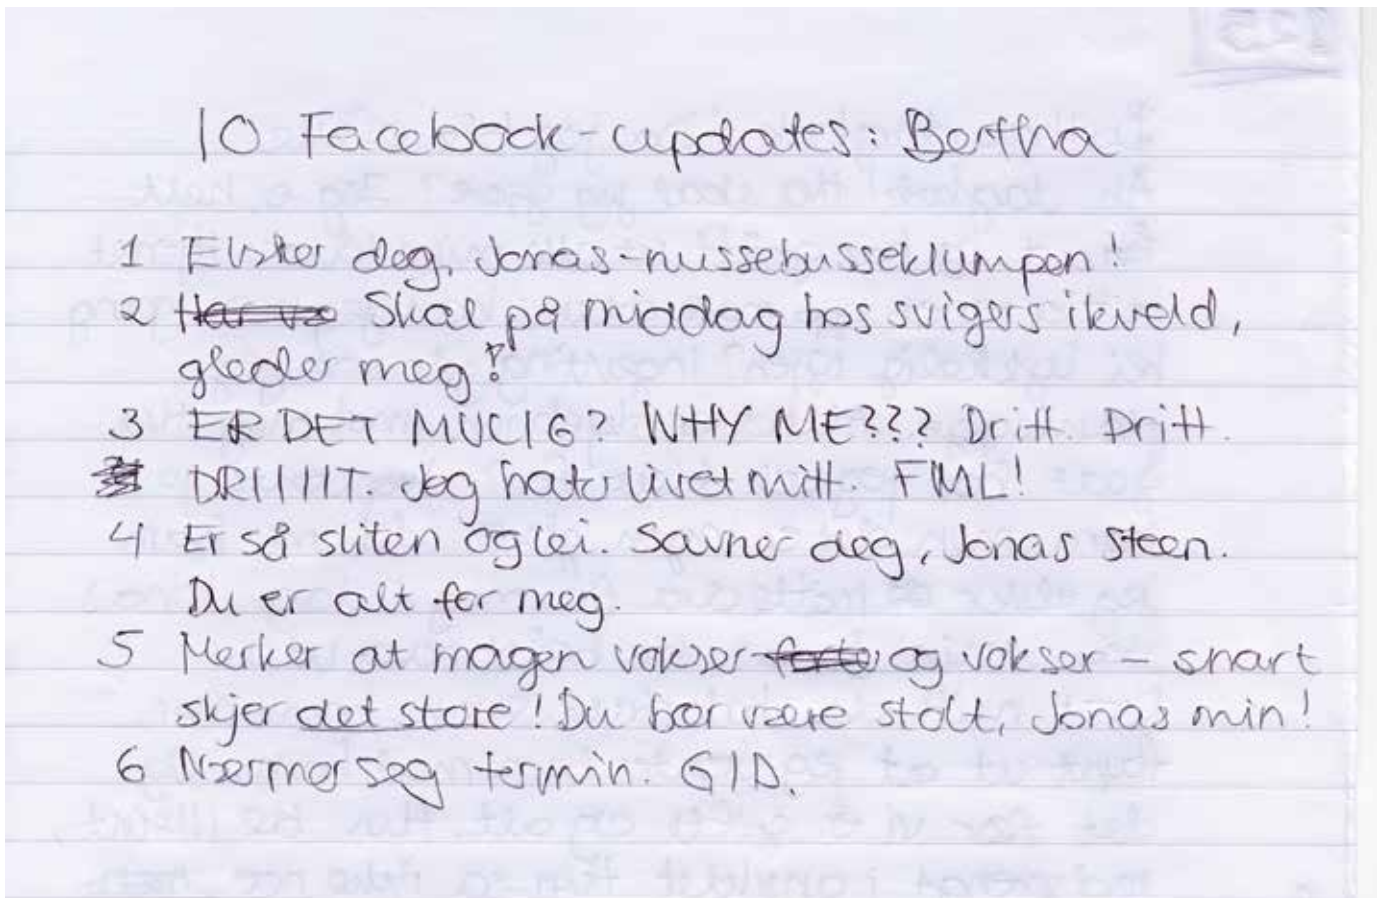 10 Facebook-updates: Bertha
1 Elsker deg, Jonas-nussebusseklumpen!
2 Har væ Skal på middag hos svigers ikveld,
gleder meg!
3 ER DET MULIG? WHY ME??? Dritt. Dritt.
DRIIIIT. Jeg hater livet mitt. FML!
4 Er så sliten og lei. Savner deg, Jonas Steen.
Du er alt for meg.
5 Merker at magen vokser og vokser – snart
skjer det store! Du bør være stolt, Jonas min!
6 Nærmer seg termin. GID.